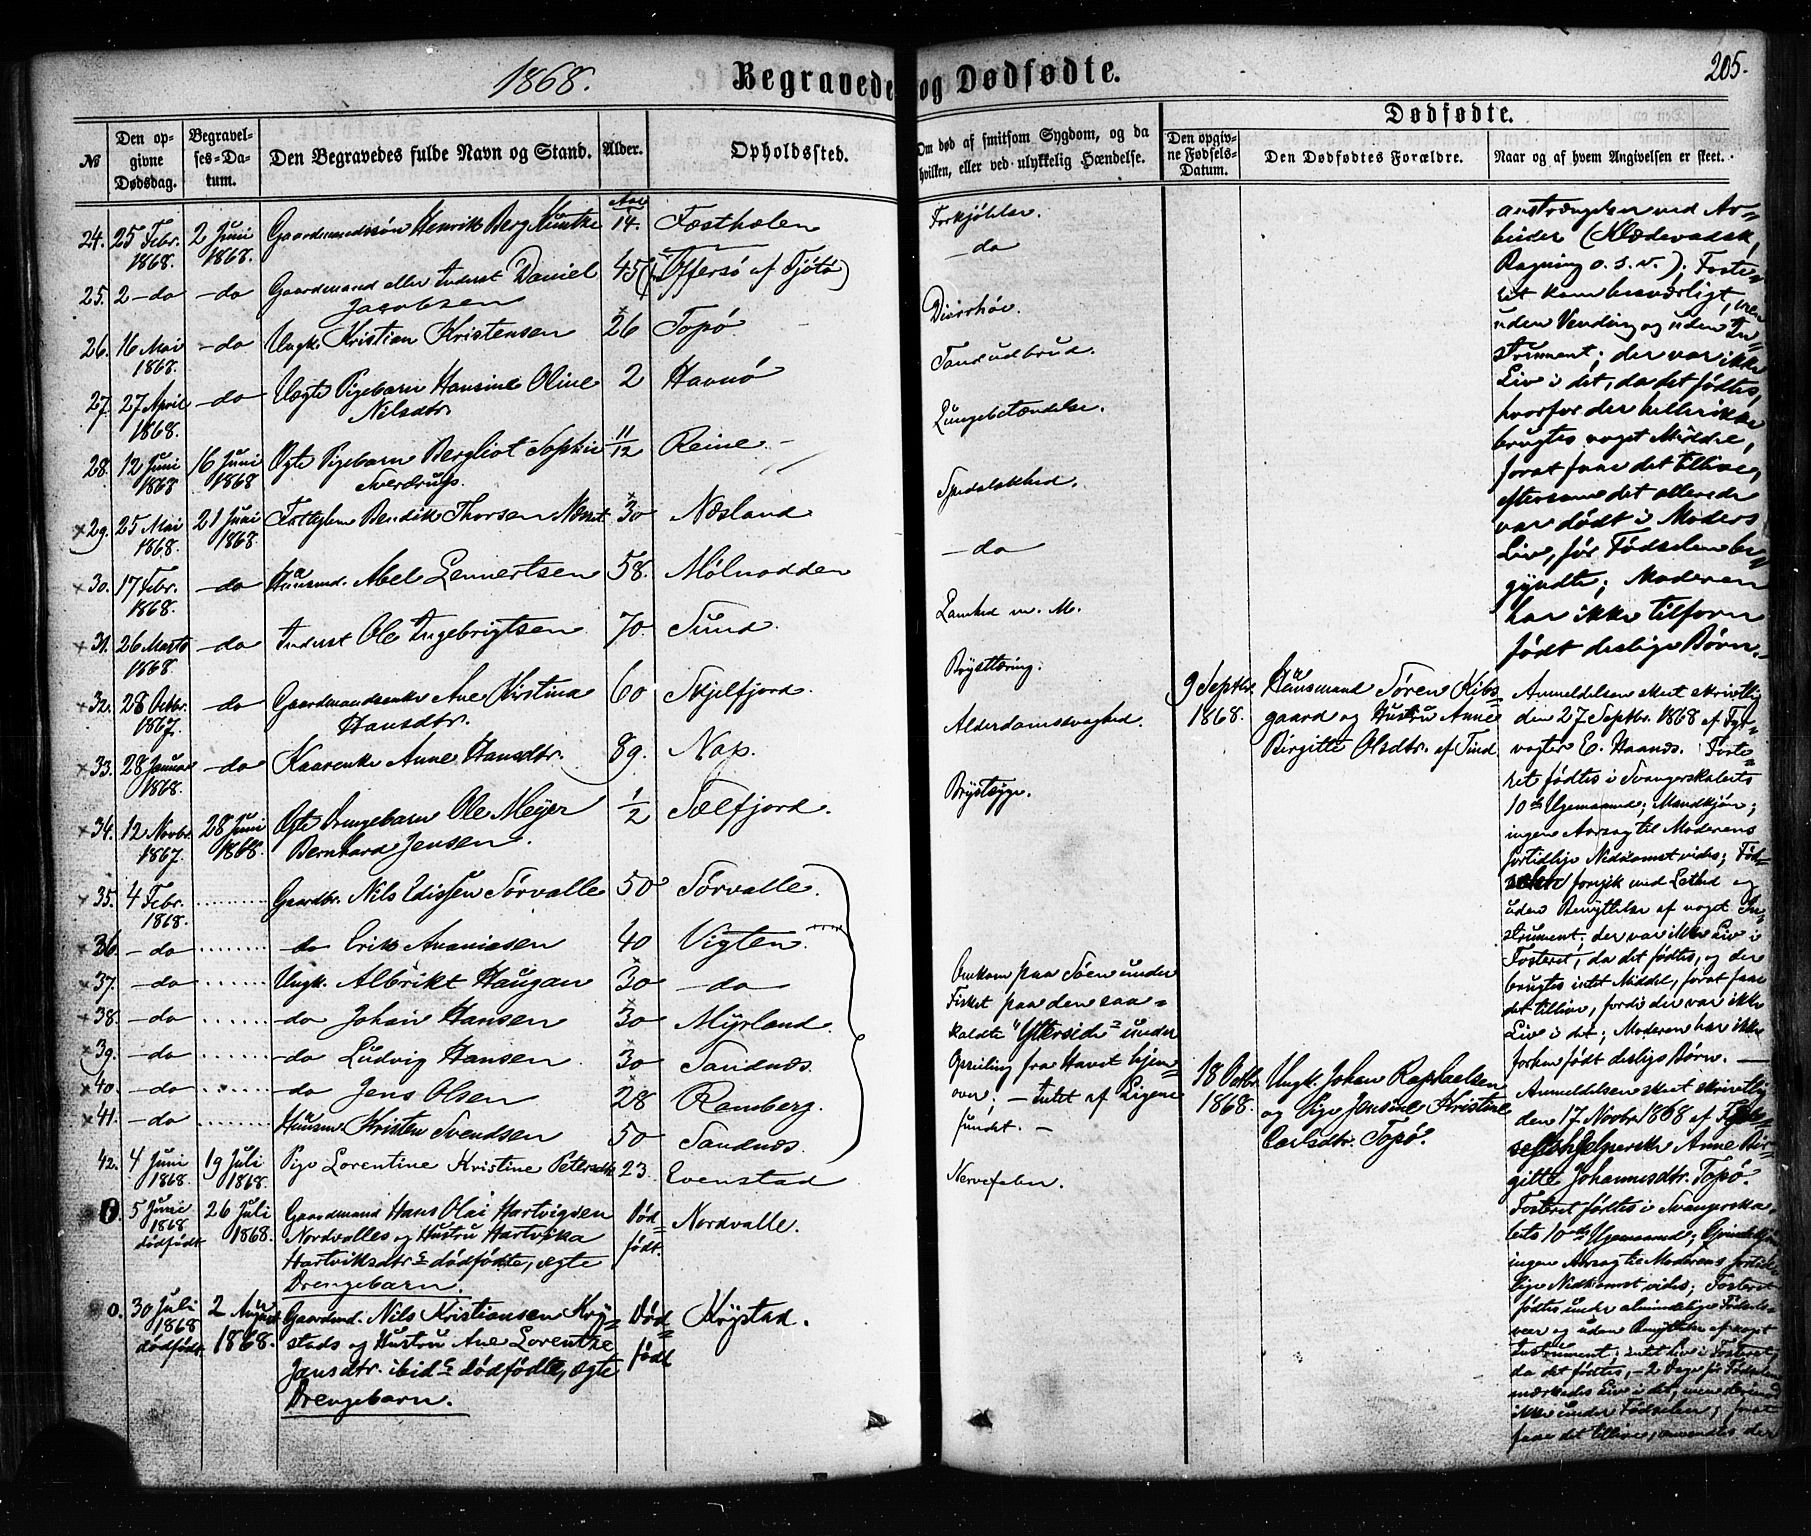 1868.
Begravede og Dødfødte.
205.
№
Den opgivne Dødsdag.
Begravelses-Datum.
Den Begravedes fulde Navn og Stand.
Alder.
Opholdssted.
Om død af smitsom Sygdom, og da hvilken, eller ved ulykkelig Hændelse.
Dødfødte.
Den opgivne Fødsels-Datum.
Den Dødfødtes Forældre.
Naar og af hvem Angivelsen er skeet.
24. 25 Febr. 1868. 2 Juni 1868. Gaardmandssøn Henrik Berg Aar 14. Forkjølelse.
25. 2 - do - do Gaardmand eller Inderst Daniel Jacobsen 45 (Offersø af Tjøtø) - do
26. 16 Mai 1868. - do Ungk. Kristian Kristensen 26 Topø Diarrhøe.
27. 27 April 1868. - do Ægte Pigebarn Hansine Oline Nilsdtr. 2 Havnø Tandudbrud.
28. 12 Juni 1868 16 Juni 1868 Ægte Pigebarn Bergliot Sophie Sverdrup. 11/12 Reine. Lungebetændelse.
29. 25 Mai 1868. 21 Juni 1868. Bendik Thorsen 30 Næsland Spedalskhed.
30. 17 Febr. 1868. - do Huusmd. Abel Lennertsen 58. Mølnodden - do
31. 26 Marts 1868. - do Inderst Ole Ingebrigtsen 70. Sund Lamhed m. M.
32. 28 Octbr. 1867. - do Gaardmandsenke Ane Kirstina Hansdtr. 60 Skjelfjord. Brysttæring.
33. 28 Januar 1868. - do Kaarenke Anne Hansdtr. 89. Nap. Alderdomssvaghed.
34. 12 Novbr. 1867. 28 Juni 1868. Ægte Drengebarn Ole Meyer Bernhard Jensen. 1/2 Sælfjord. Brystsyge.
35. 4 Febr. 1868. Gaardbr. Nils Edissen Sørvalle 50 Sørvalle.
36. - do do Erik Ananiasen 40 Vigten.
37. - do Ungk. Albrikt Haugan 30 - do
38. - do - do Johan Hansen 30 Myrland.
39. - do - do Ludvig Hansen 30 Sandnæs.
40. - do - do Jens Olsen 28 Ramberg.
41. - do Huusm. Kristen Svendsen 50 Sandnæs.
Omkom paa Søen under
Fisket paa den saa-
kaldte "Yterside" under
Opseiling fra Havet hjem-
over; - Intet af Ligene
fundet. -
42. 4 Juni 1868. 19 Juli 1868. Pige Lorentine Kristine Petersdtr 23. Evenstad Nervefeber.
0. 5 Juni 1868 dødfødt 26 Juli 1868. Gaardmand Hans Olai Hartvigsen
Nordvalles og Hustru Hartvika
Hartviksdtr:s dødfødte, ægte
Drengebarn. Dødfødt. Nordvalle.
0. 30 Juli 1868 dødfødt. 2 August 1868. Gaardmd. Nils Kristiansen Kry-
stads og Hustru Ane Lorentze
Jansdtr. ibid:s dødfødte, ægte
Drengebarn. Dødfødt Krystad.
anstrængelse ved Ar-
beider (Klædevadsk,
Ragning o. s. v.); Foste-
ret kom besværligt, men
uden Vending og uden In-
strument; der var ikke
Liv i det, da det fødtes,
hvorfor der heller ikke
brugtes noget Middel,
forat faae det tillive,
eftersom det allerede
var dødt i Moders
Liv, før Fødselen be-
gyndte; Moderen
har ikke tilforn
født deslige Børn. -
9 Septbr. 1868. Huusmand Søren Kibs-
gaard og Hustru Anne
Birgitte Olsdtr. af Tind
Anmeldelsen skeet skriftlig
den 27 Septbr. 1868 af Fyr-
vogter E. Haanæs. Foste-
ret fødtes i Svangerskabets
10de Ugemaaned; Mandkjøn;
ingen Aarsag til Moderens
fortidlige Nedkomst vides; Fød-
selen foregik med Lethed og
uden Benyttelse af noget In-
strument; der var ikke Liv i
Fosteret, da det fødtes, og der
brugtes intet Middel, forat faae
det tillive, fordi der var ikke
Liv i det; Moderen har ikke
forhen født deslige Børn. -
18 Octbr. 1868. Ungk. Johan Raphaelsen
og Pige Jensine Kristine
Carlsdtr. Topø.
Anmeldelsen skeet skriftlig
den 17. Novbr. 1868 af
Anne Bir-
gitte Johannesdtr. Topø.
Fosteret fødtes i Svangerska-
bets 10de Ugemaaned; Qvindekjøn;
ingen Aarsag til Moderens fortid-
lige Nedkomst vides; Fosteret
fødtes under almindelige Fødsels-
veer og uden Benyttelse af noget
Instrument; intet Live i Fosteret,
da det fødtes, - 2 Dage før Fødselen
mærkedes Live i det, men derimod
ikke under Fødselen; forat
faae det tillive, anvendtes der